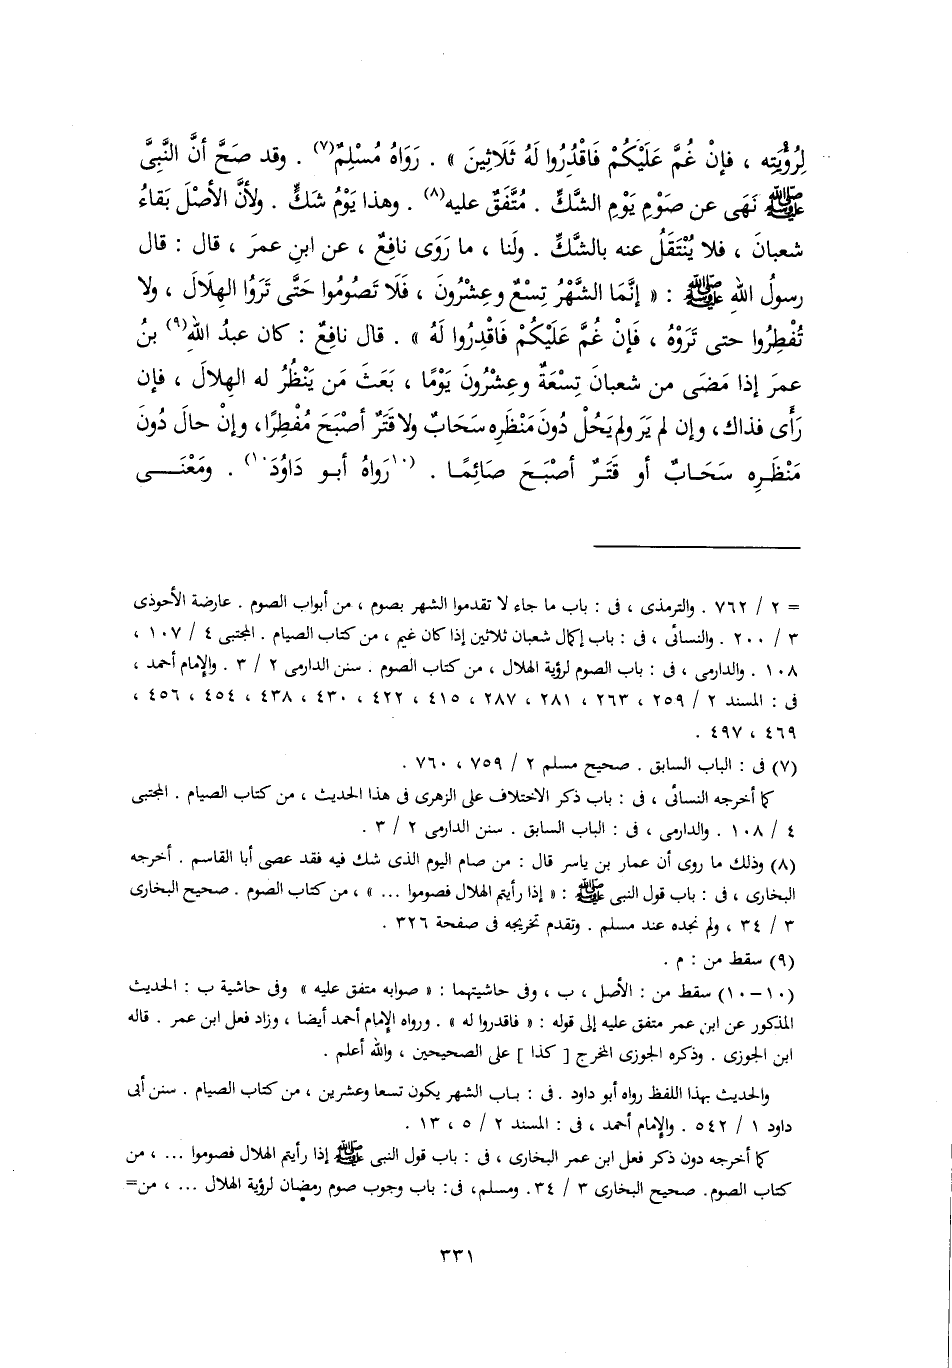 لِرُؤْيَتِه ، فإنْ غُمَّ عَلَيْكُمْ فَاقْدُرُوا لَهُ ثَلَاثِينَ » . رَوَاهُ مُسْلِمٌ(٧) . وقد صَحَّ أنَّ النَّبِىَّ
ﷺ نَهَى عن صَوْمِ يَوْمِ الشَّكِّ . مُتَّفَقٌ عليه(٨) . وهذا يَوْمُ شَكٍّ . ولأنَّ الأصْلَ بَقاءُ
شعبانَ ، فلا يُنْتَقَلُ عنه بالشَّكِّ . ولَنا ، ما رَوَى نافِعٌ ، عن ابنِ عمرَ ، قال : قال
رسولُ اللهِ ﷺ : « إنَّمَا الشَّهْرُ تِسْعٌ وعِشْرُونَ ، فَلَا تَصُومُوا حَتَّى تَرَوُا الهِلَالَ ، ولا
تُفْطِرُوا حتى تَرَوْهُ ، فَإنْ غُمَّ عَلَيْكُمْ فَاقْدِرُوا لَهُ » . قال نافِعٌ : كان عبدُ اللهِ(٩) بنُ
عمرَ إذا مَضَى من شعبانَ تِسْعَةٌ وعِشْرُونَ يَوْمًا ، بَعَثَ مَن يَنْظُرُ له الهِلالَ ، فإن
رَأَى فذاك ، وإن لم يَرَ ولم يَحُلْ دُونَ مَنْظَرِه سَحَابٌ ولا قَتَرٌ أصْبَحَ مُفْطِرًا ، وإنْ حالَ دُونَ
مَنْظَرِه سَحَابٌ أو قَتَرٌ أصْبَحَ صَائِمًا . (١٠رَواهُ أبو دَاوُدَ١٠) . ومَعْنَى
= ٢ / ٧٦٢ . والترمذى ، فى : باب ما جاء لا تقدموا الشهر بصوم ، من أبواب الصوم . عارضة الأحوذى
٣ / ٢٠٠ . والنسائى ، فى : باب إكمال شعبان ثلاثين إذا كان غيم ، من كتاب الصيام . المجتبى ٤ / ١٠٧ ،
١٠٨ . والدارمى ، فى : باب الصوم لرؤية الهلال ، من كتاب الصوم . سنن الدارمى ٢ / ٣ . والإمام أحمد ،
فى : المسند ٢ / ٢٥٩ ، ٢٦٣ ، ٢٨١ ، ٢٨٧ ، ٤١٥ ، ٤٢٢ ، ٤٣٠ ، ٤٣٨ ، ٤٥٤ ، ٤٥٦ ،
٤٦٩ ، ٤٩٧ .
(٧) فى : الباب السابق . صحيح مسلم ٢ / ٧٥٩ ، ٧٦٠ .
كما أخرجه النسائى ، فى : باب ذكر الاختلاف على الزهرى فى هذا الحديث ، من كتاب الصيام . المجتبى
٤ / ١٠٨ . والدارمى ، فى : الباب السابق . سنن الدارمى ٢ / ٣ .
(٨) وذلك ما روى أن عمار بن ياسر قال : من صام اليوم الذى شك فيه فقد عصى أبا القاسم . أخرجه
البخارى ، فى : باب قول النبى ﷺ : « إذا رأيتم الهلال فصوموا ... » ، من كتاب الصوم . صحيح البخارى
٣ / ٣٤ ، ولم نجده عند مسلم . وتقدم تخريجه فى صفحة ٣٢٦ .
(٩) سقط من : م .
(١٠-١٠) سقط من : الأصل ، ب ، وفى حاشيتهما : « صوابه متفق عليه » وفى حاشية ب : الحديث
المذكور عن ابن عمر متفق عليه إلى قوله : « فاقدروا له » . ورواه الإمام أحمد أيضا ، وزاد فعل ابن عمر . قاله
ابن الجوزى . وذكره الجوزى المخرج [ كذا ] على الصحيحين ، والله أعلم .
والحديث بهذا اللفظ رواه أبو داود . فى : باب الشهر يكون تسعا وعشرين ، من كتاب الصيام . سنن أبى
داود ١ / ٥٤٢ . والإمام أحمد ، فى : المسند ٢ / ٥ ، ١٣ .
كما أخرجه دون ذكر فعل ابن عمر البخارى ، فى : باب قول النبى ﷺ إذا رأيتم الهلال فصوموا ... ، من
كتاب الصوم . صحيح البخارى ٣ / ٣٤ . ومسلم ، فى : باب وجوب صوم رمضان لرؤية الهلال ... ، من=
٣٣١